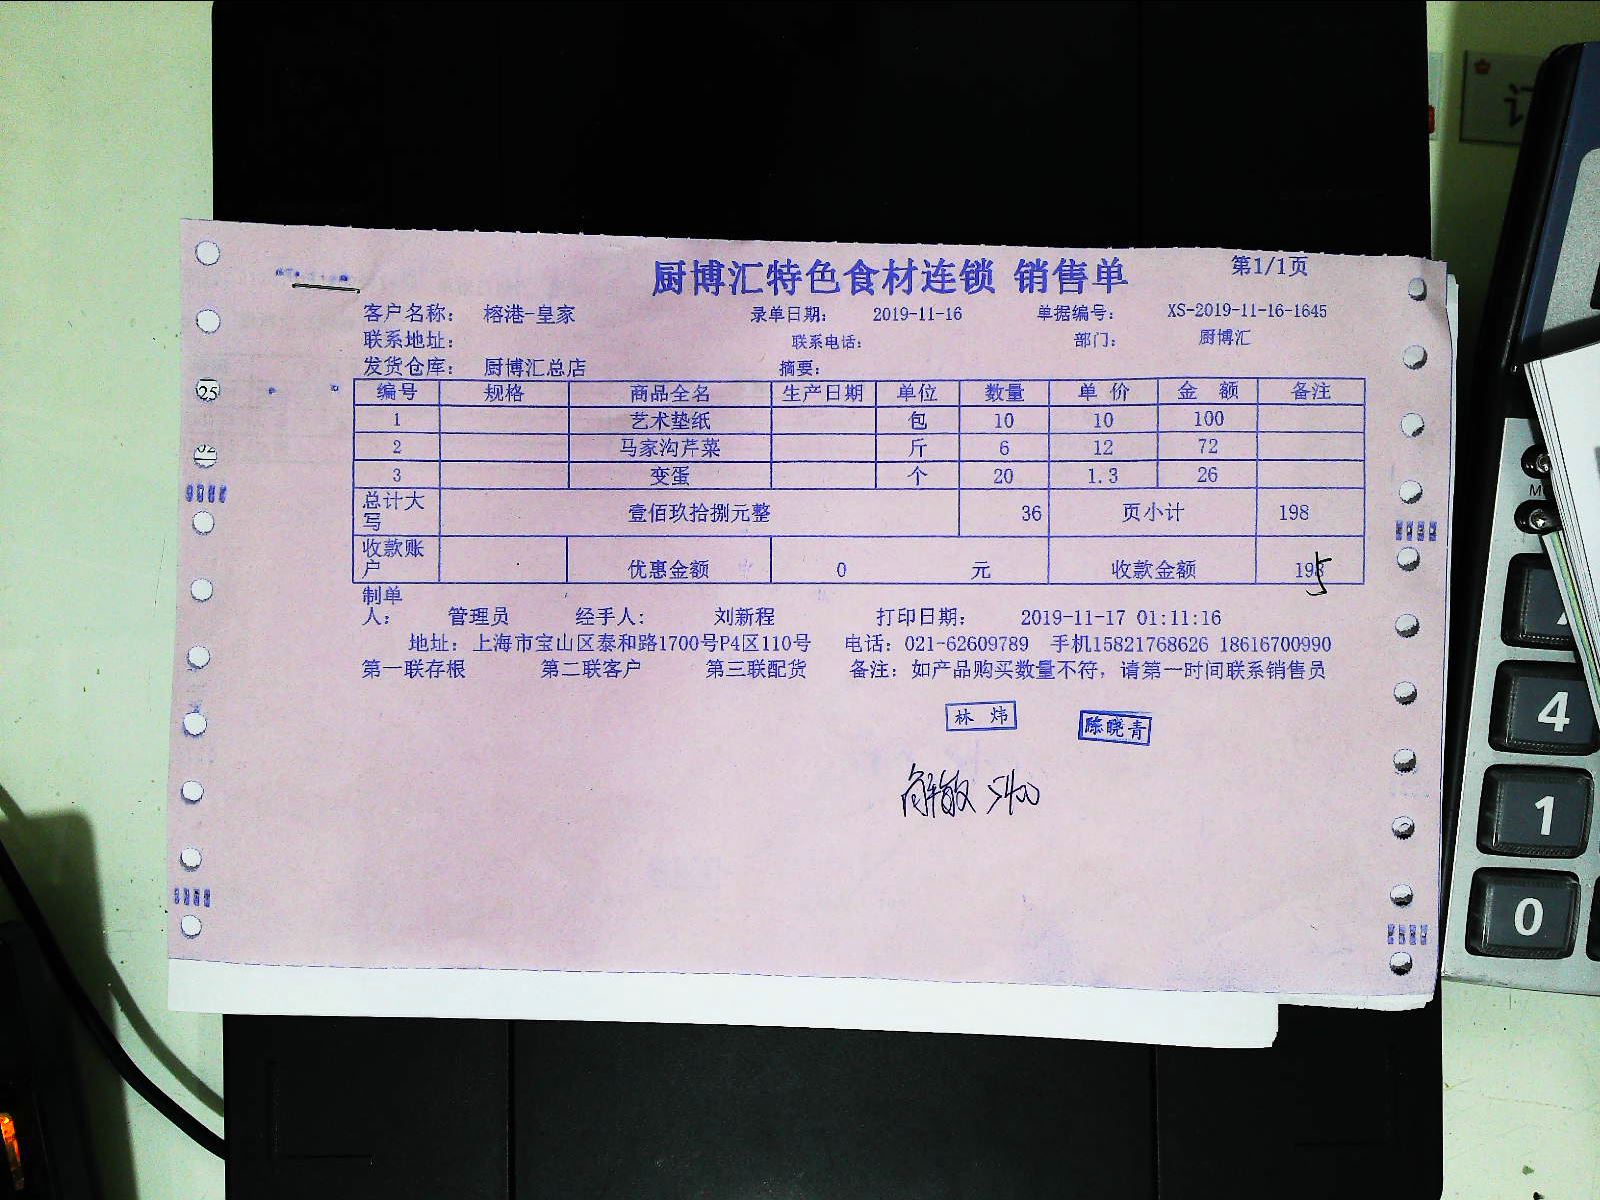 厨博汇特色食材连锁 销售单 第1/1页
客户名称： 榕港-皇家 录单日期： 2019-11-16 单据编号： XS-2019-11-16-1645
联系地址： 联系电话： 部门： 厨博汇
发货仓库： 厨博汇总店 摘要：
编号 规格 商品全名 生产日期 单位 数量 单价 金额 备注
1 艺术垫纸 包 10 10 100
2 马家沟芹菜 斤 6 12 72
3 变蛋 个 20 1.3 26
总计大写 壹佰玖拾捌元整 36 页小计 198
收款账户 优惠金额 0 元 收款金额 195
制单人： 管理员 经手人： 刘新程 打印日期： 2019-11-17 01:11:16
地址：上海市宝山区泰和路1700号P4区110号 电话：021-62609789 手机15821768626 18616700990
第一联存根 第二联客户 第三联配货 备注：如产品购买数量不符，请第一时间联系销售员
林炜 陈晓青
25
4
1
0